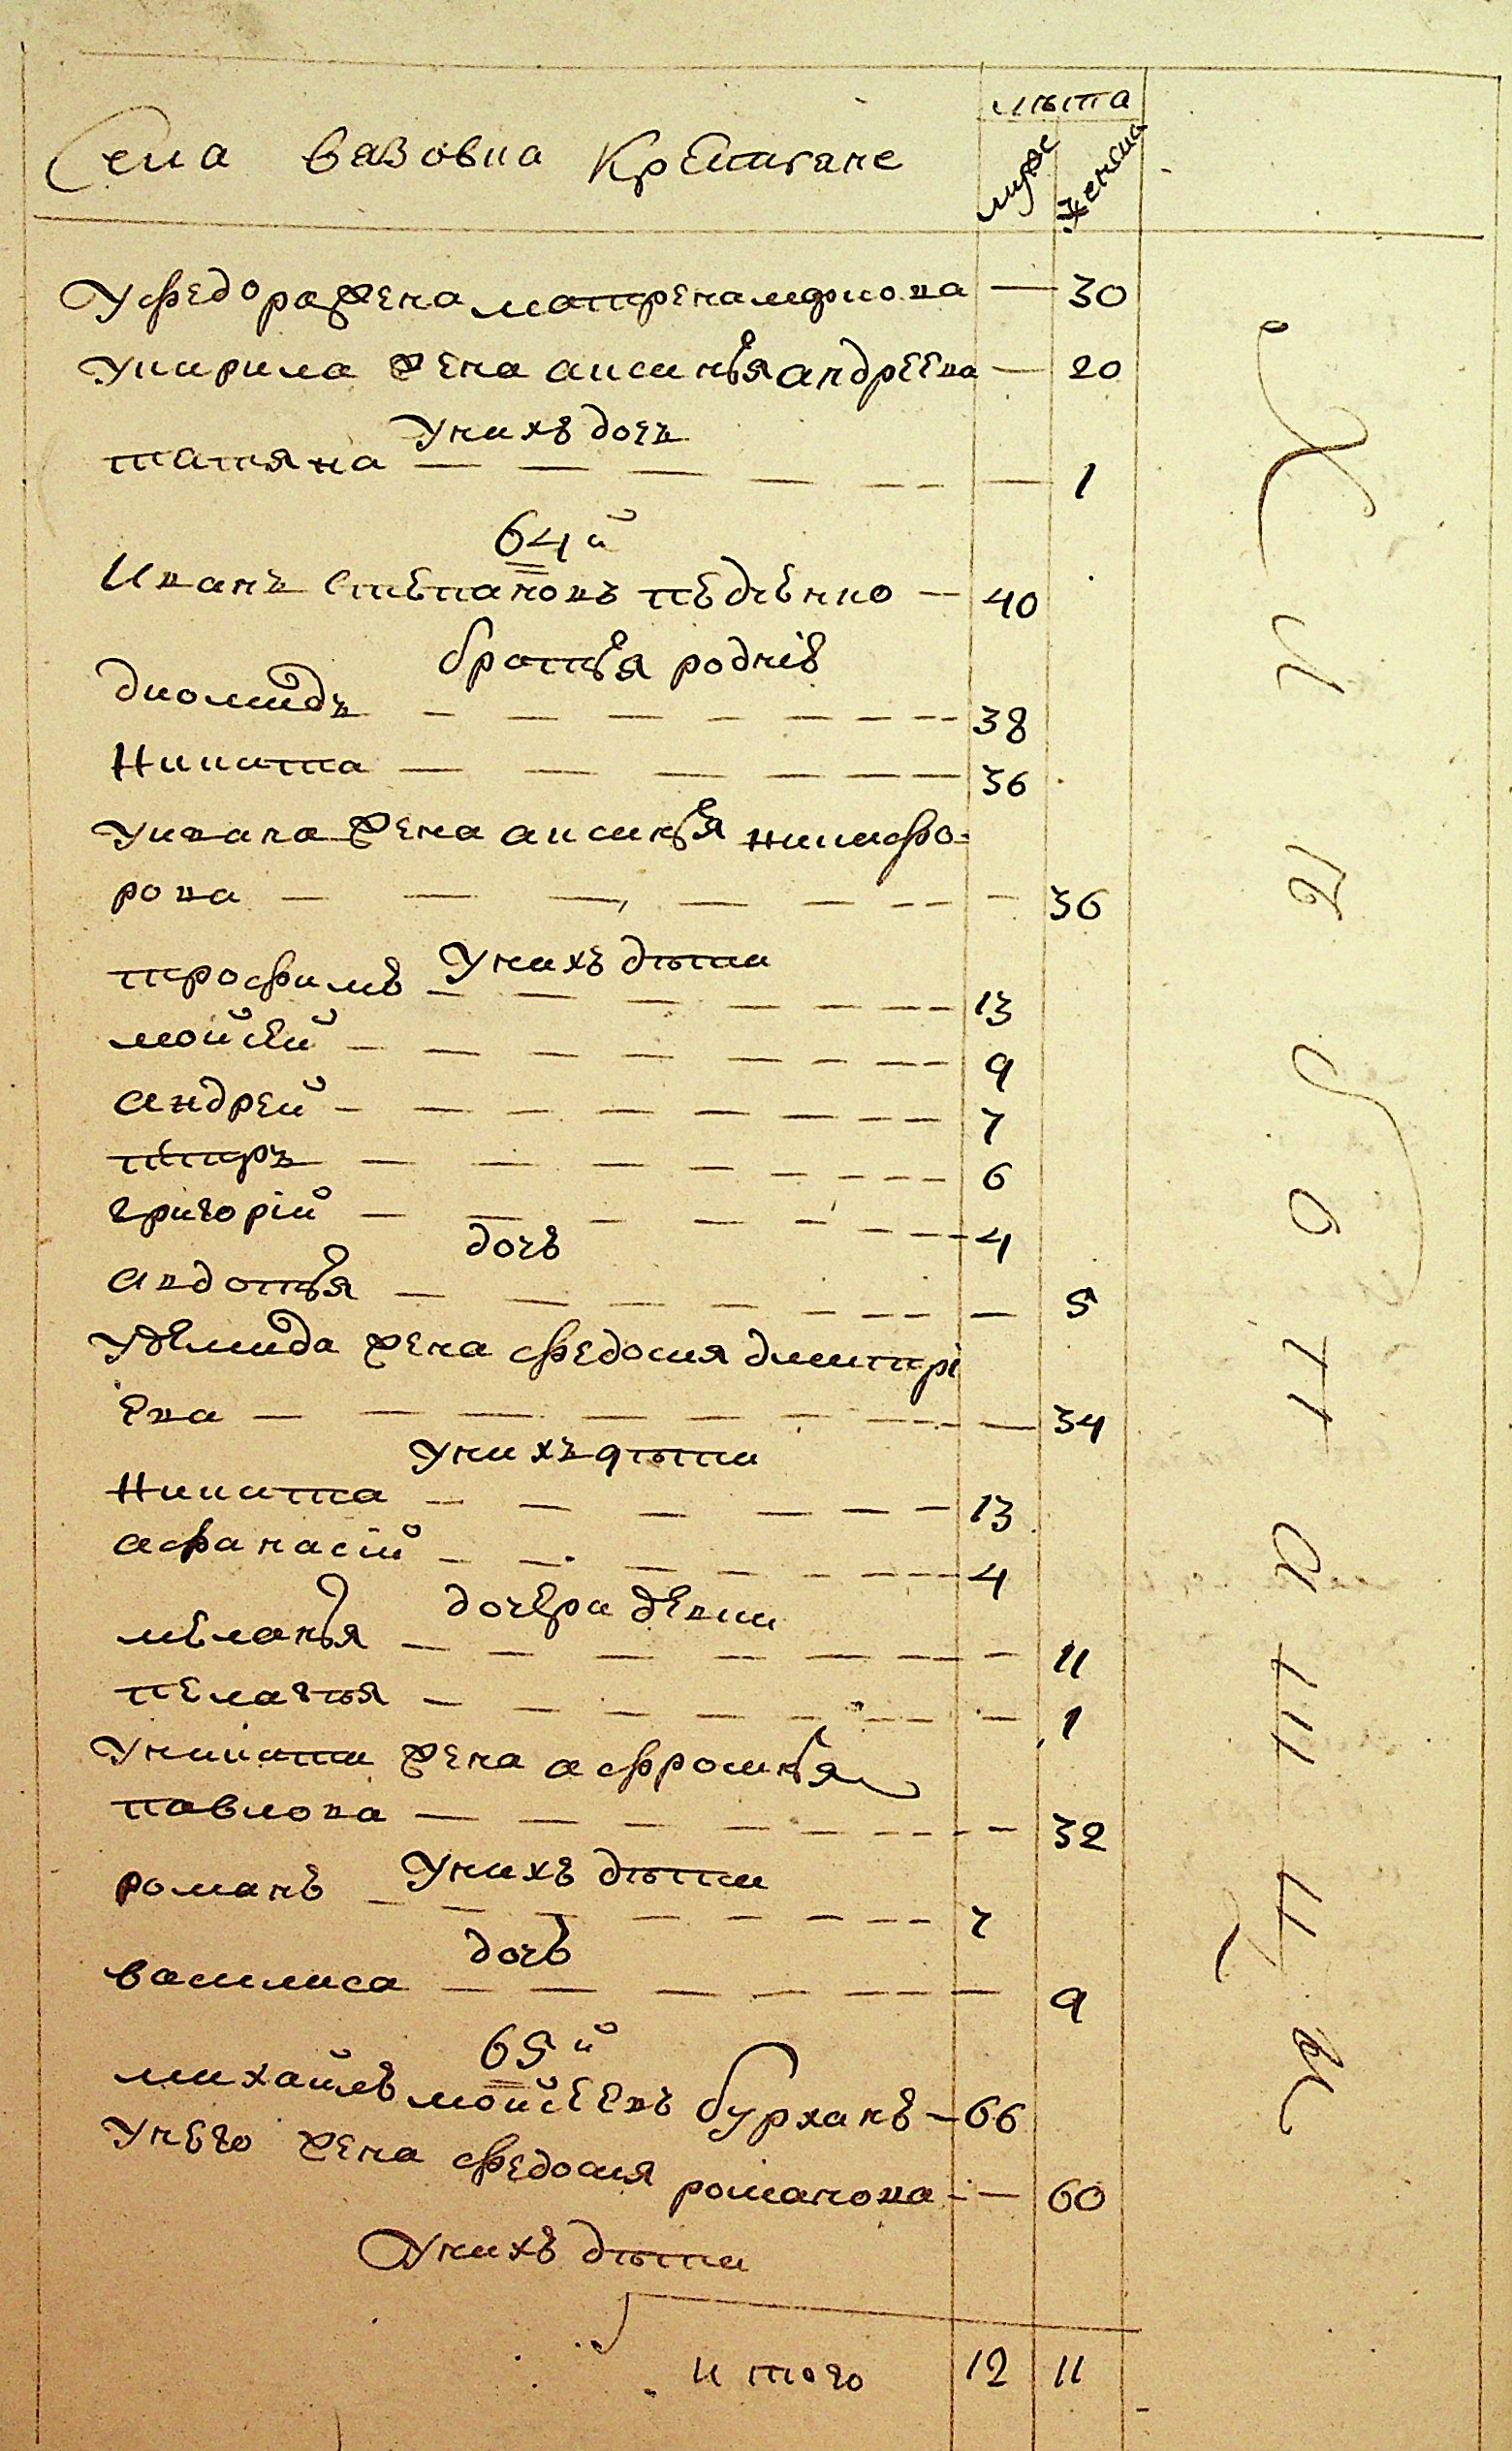 лѣта
Села вязовка Крестьяне
мужс женска
У федора жена матрена мфиова — 30
Укирила жена аксинья андреева — 20
Унихъ дочь
татьяна — 1
64й
Иванъ степановъ педченко — 40
братья родніе
диомидъ — 38
Никита — 36
Уивана жена аксинья никифо=
рова — 36
Унихъ дѣти
трофимъ — 13
мойсей — 9
андрей — 7
петръ — 6
григорій — 4
дочь
авдотья — 5
Удемида жена федосия дмитрі
ева — 34
Унихъ дѣти
Никита — 13
афанасій — 4
дочери девки
меланья — 11
пелагѣя — 1
Уникиты жена афросинья
павлова — 32
Унихъ дѣти
романъ — 7
дочь
василиса — 9
65й
михайлъ мойсеевъ бурханъ — 66
Унего жена федосия романова — 60
Унихъ дѣти
итого 12 11